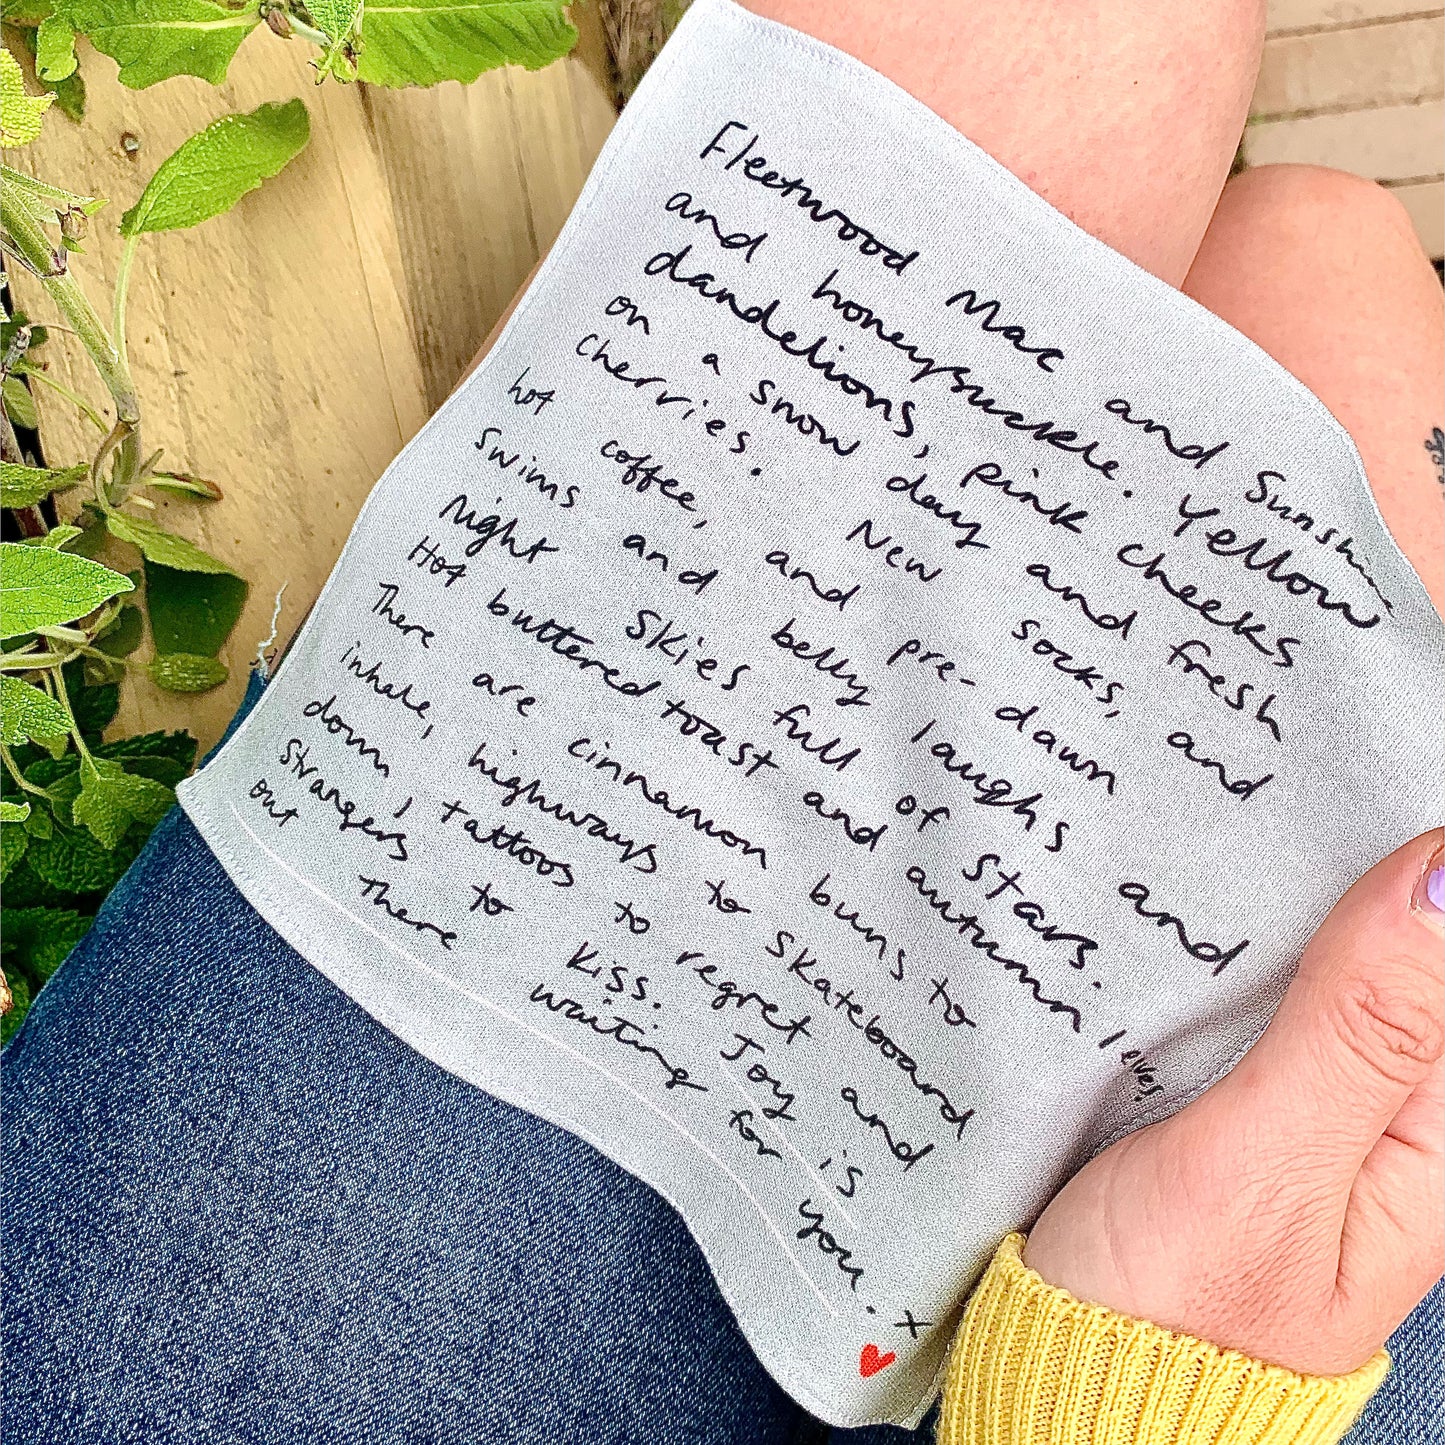 Fleetwood Mac and Sunshine
and honeysuckle. Yellow
dandelions, pink cheeks
on a snow day and fresh
cherries. New socks, and
hot coffee, and pre-dawn
Swims and belly laughs and
Night Skies full of stars.
Hot buttered toast and autumn leaves.
There are cinnamon buns to
inhale, highways to skateboard
down, tattoos to regret and
Strangers to kiss. Joy is
out there waiting for you. x